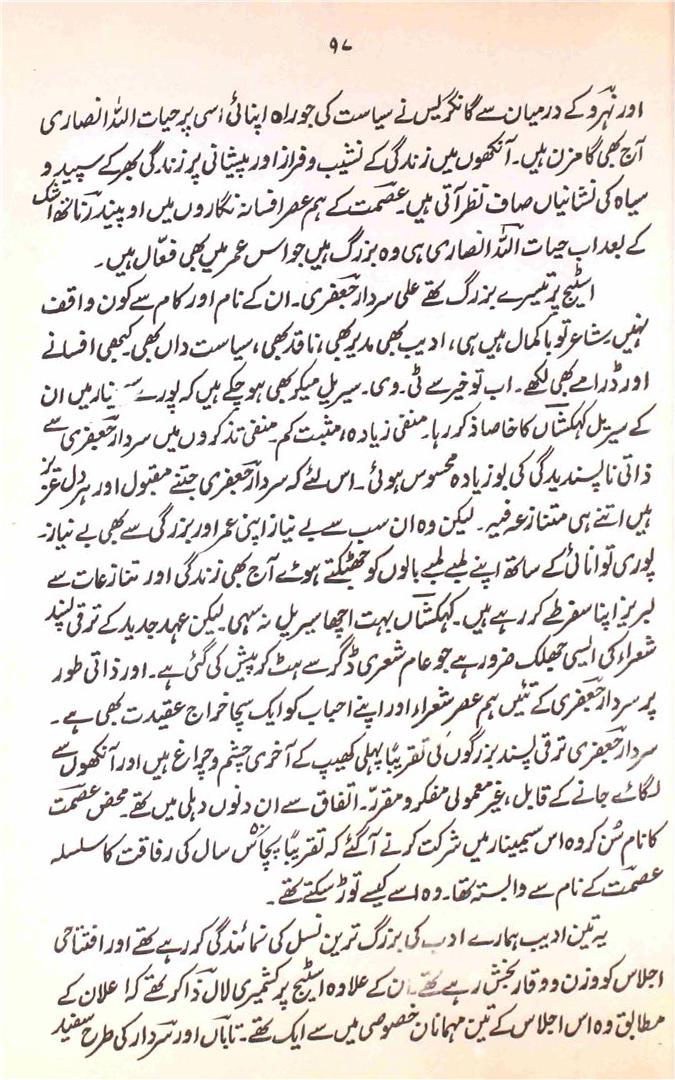 ۹۷
اور نہرو کے درمیان سے گانگریس نے سیاست کی جو راہ اپنائی اسی پر حیات اللہ انصاری
آج بھی گامزن ہیں۔ آنکھوں میں زندگی کے نشیب و فراز اور پیشانی پر زندگی بھر کے سپید و
سیاہ کی نشانیاں صاف نظر آتی ہیں۔ عصمت کے ہم عصر افسانہ نگاروں میں اوپیندر ناتھ اشک
کے بعد اب حیات اللہ انصاری ہی وہ بزرگ ہیں جو اس عمر میں بھی فعّال ہیں۔
اسٹیج پر تیسرے بزرگ تھے علی سردار جعفری۔ ان کے نام اور کام سے کون واقف
نہیں۔ شاعر تو باکمال ہیں ہی، ادیب بھی مدیر بھی، ناقد بھی، سیاست داں بھی۔ کبھی افسانے
اور ڈرامے بھی لکھے۔ اب تو خیر سے ٹی۔ وی۔ سیریل میکر بھی ہو چکے ہیں کہ پورے سیمینار میں ان
کے سیریل کہکشاں کا خاصا ذکر رہا۔ منفی زیادہ، مثبت کم۔ منفی تذکروں میں سردار جعفری سے
ذاتی ناپسندیدگی کی بو زیادہ محسوس ہوئی۔ اس لئے کہ سردار جعفری جتنے مقبول اور ہر دل عزیز
ہیں اتنے ہی متنازعہ فیہ۔ لیکن وہ ان سب سے بے نیاز اپنی عمر اور بزرگی سے بھی بے نیاز۔
پوری توانائی کے ساتھ اپنے لمبے لمبے بالوں کو جھٹکتے ہوئے آج بھی زندگی اور تنازعات سے
لبریز اپنا سفر طے کر رہے ہیں۔ کہکشاں بہت اچھا سیریل نہ سہی لیکن عہد جدید کے ترقی پسند
شعراء کی ایسی جھلک ضرور ہے جو عام شعری ڈگر سے ہٹ کر پیش کی گئی ہے۔ اور ذاتی طور
پر سردار جعفری کے تئیں ہم عصر شعراء اور اپنے احباب کو ایک سچا خراج عقیدت بھی ہے۔
سردار جعفری ترقی پسند بزرگوں کی تقریباً پہلی کھیپ کے آخری چشم و چراغ ہیں اور آنکھوں سے
لگائے جانے کے قابل، غیر معمولی مفکر و مقرر۔ اتفاق سے ان دنوں دہلی میں تھے۔ محض عصمت
کا نام سُن کر وہ اس سیمینار میں شرکت کرنے آگئے کہ تقریباً پچاس سال کی رفاقت کا سلسلہ
عصمت کے نام سے وابستہ تھا۔ وہ اسے کیسے توڑ سکتے تھے۔
یہ تین ادیب ہمارے ادب کی بزرگ ترین نسل کی نمائندگی کر رہے تھے اور افتتاحی
اجلاس کو وزن و وقار بخش رہے تھے۔ ان کے علاوہ اسٹیج پر کشمیری لال ذاکر تھے کہ اعلان کے
مطابق وہ اس اجلاس کے تین مہمانان خصوصی میں سے ایک تھے۔ تاباں اور سردار کی طرح سفید